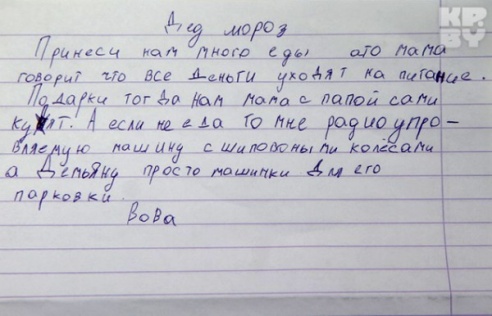 Дед мороз
Принеси нам много еды ато мама
говорит что все деньги уходят на питание.
Подарки тогда нам мама с папой сами
купят. А если не еда то мне радиоупро-
вляемую машину с шиповоными колёсами
а Демьяну просто машинки для его
парковки.
Вова
KP.
BY